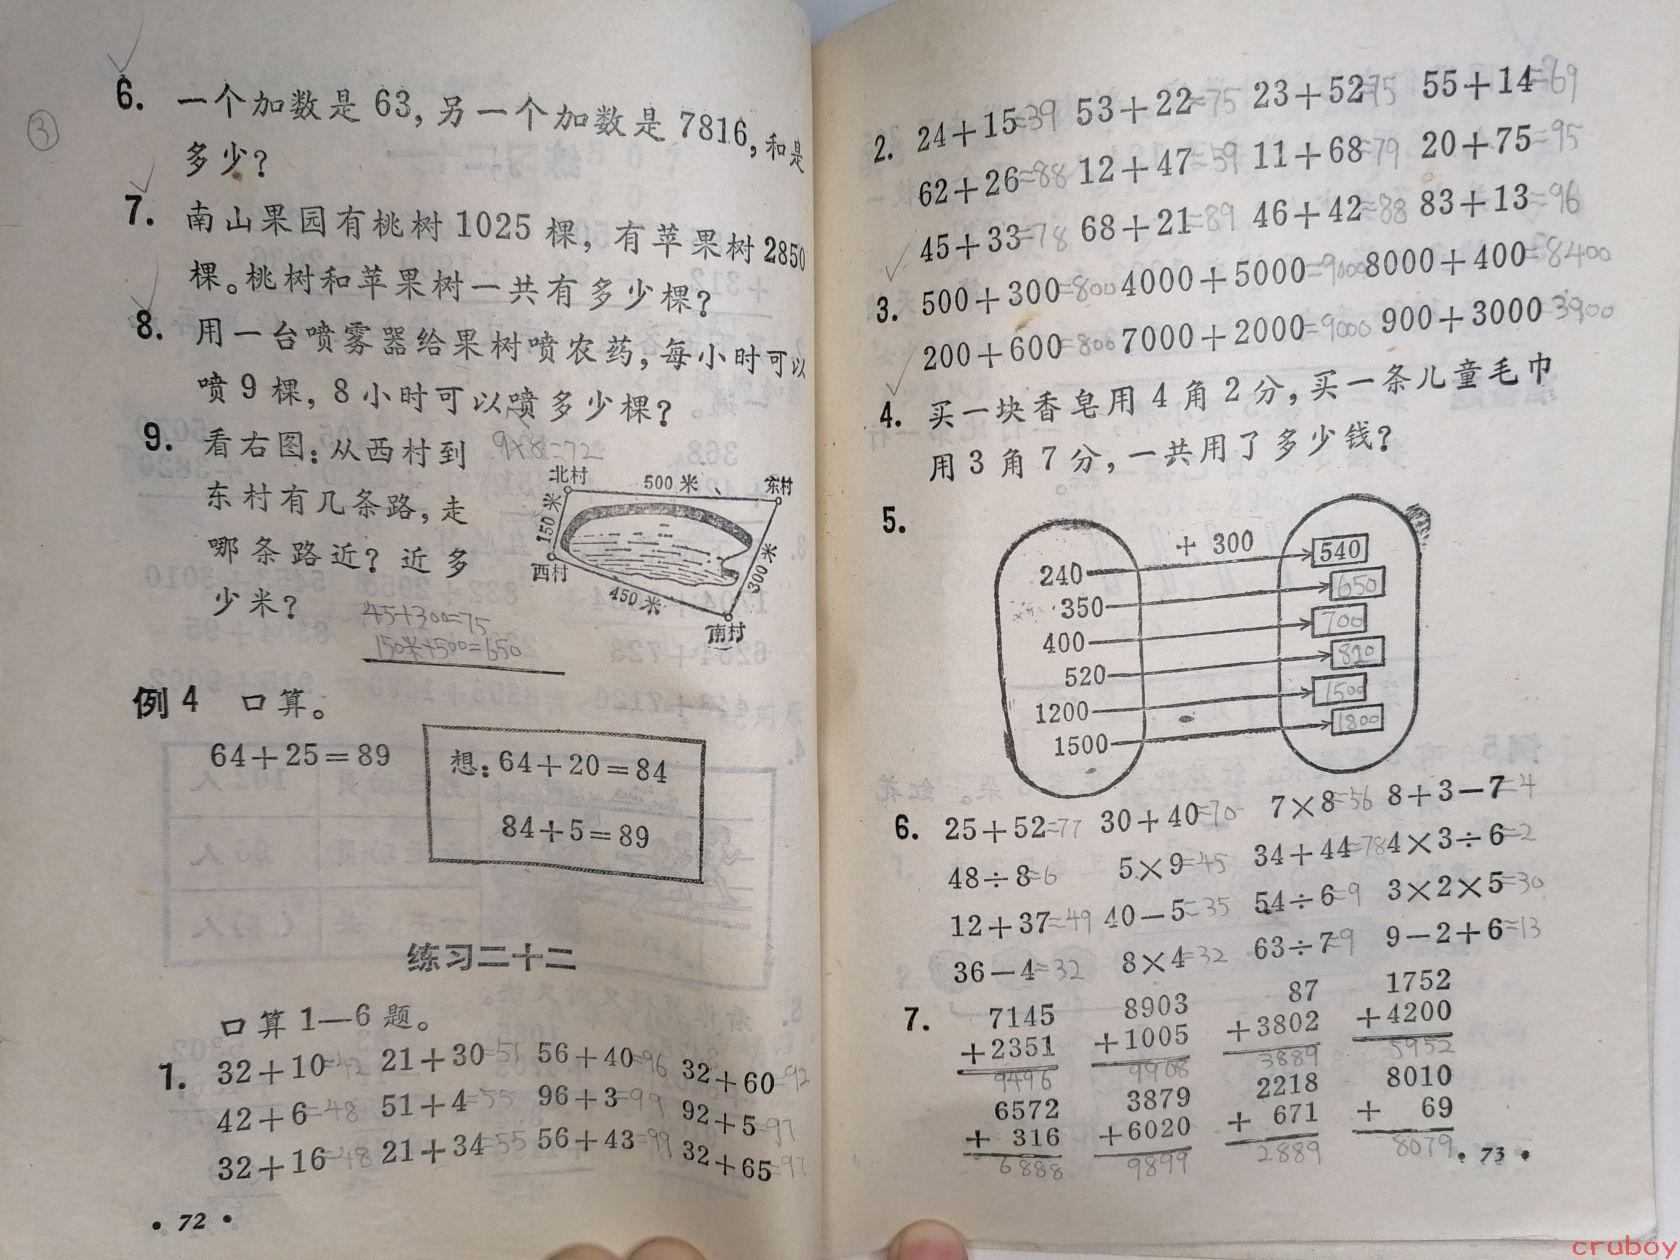 ③
6. 一个加数是 63, 另一个加数是 7816, 和是
多少?
7. 南山果园有桃树 1025 棵, 有苹果树 2850
棵。桃树和苹果树一共有多少棵?
8. 用一台喷雾器给果树喷农药, 每小时可以
喷 9 棵, 8 小时可以喷多少棵?
9×8=72
9. 看右图: 从西村到
东村有几条路, 走
哪条路近? 近多
少米?
北村
500 米
东村
150 米
西村
450 米
300 米
南村
45+300=75
150米+500=650
例 4 口算。
64+25=89
想: 64+20=84
84+5=89
练习二十二
口算 1—6 题。
1. 32+10=42 21+30=51 56+40=96 32+60=92
42+6=48 51+4=55 96+3=99 92+5=97
32+16=48 21+34=55 56+43=99 32+65=97
• 72 •
2. 24+15=39 53+22=75 23+52=75 55+14=69
62+26=88 12+47=59 11+68=79 20+75=95
45+33=78 68+21=89 46+42=88 83+13=96
3. 500+300=800 4000+5000=9000 8000+400=8400
200+600=800 7000+2000=9000 900+3000=3900
4. 买一块香皂用 4 角 2 分, 买一条儿童毛巾
用 3 角 7 分, 一共用了多少钱?
5.
+ 300
240 540
350 650
400 700
520 820
1200 1500
1500 1800
6. 25+52=77 30+40=70 7×8=56 8+3−7=4
48÷8=6 5×9=45 34+44=78 4×3÷6=2
12+37=49 40−5=35 54÷6=9 3×2×5=30
36−4=32 8×4=32 63÷7=9 9−2+6=13
7. 7145 8903 87 1752
+2351 +1005 +3802 +4200
9496 9908 3889 5952
6572 3879 2218 8010
+ 316 +6020 + 671 + 69
6888 9899 2889 8079
• 73 •
cruboy